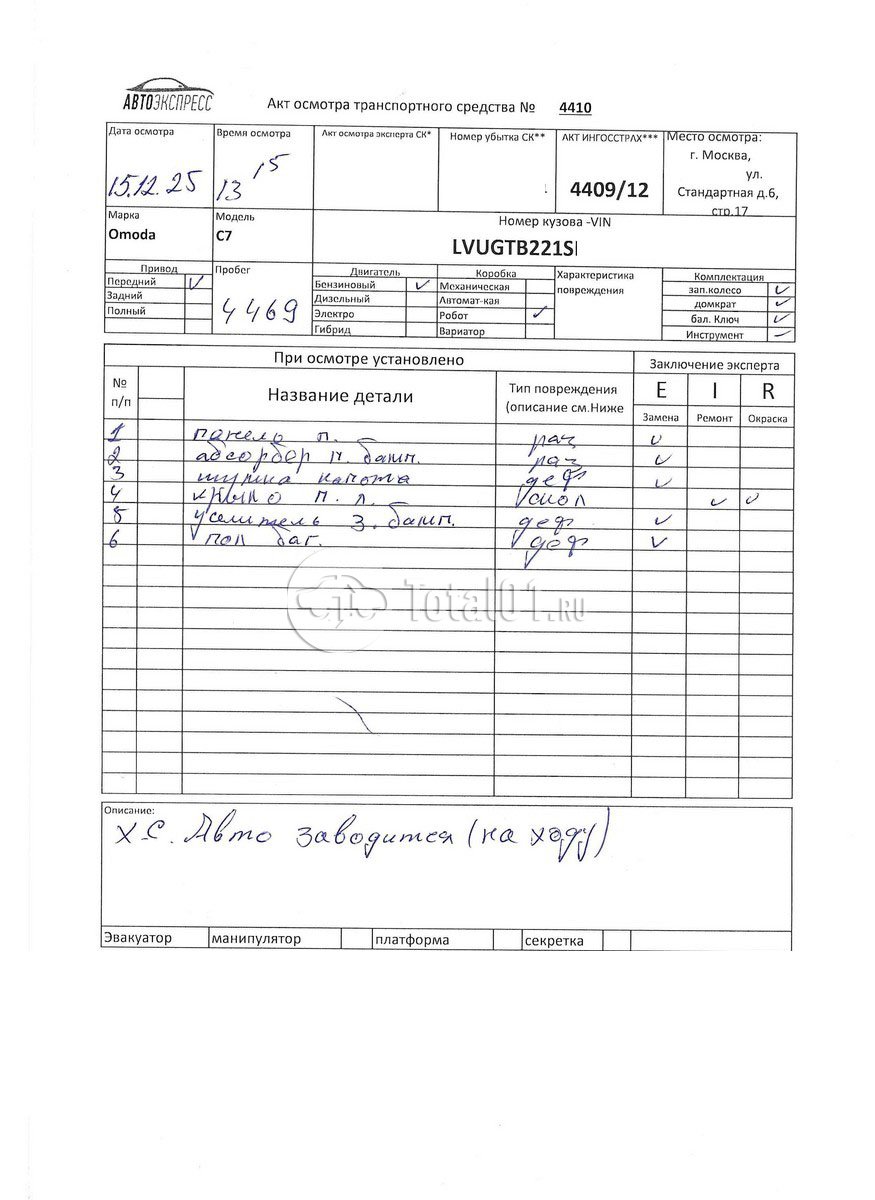 АВТОЭКСПРЕСС
Акт осмотра транспортного средства № 4410
Дата осмотра
15.12.25
Время осмотра
13 15
Акт осмотра эксперта СК*
Номер убытка СК**
АКТ ИНГОССТРАХ***
4409/12
Место осмотра:
г. Москва,
ул.
Стандартная д.6,
стр.17
Марка
Omoda
Модель
C7
Номер кузова -VIN
LVUGTB221S
Привод
Передний
Задний
Полный
Пробег
4469
Двигатель
Бензиновый
Дизельный
Электро
Гибрид
Коробка
Механическая
Автомат-кая
Робот
Вариатор
Характеристика
повреждения
Комплектация
зап.колесо
домкрат
бал. Ключ
Инструмент
При осмотре установлено
Заключение эксперта
№
п/п
Название детали
Тип повреждения
(описание см.Ниже
E I R
Замена Ремонт Окраска
1 панель п. раз
2 абсорбер п. бамп. раз
3 шумка капота деф
4 крыло п. л. скол
5 усилитель з. бамп. деф
6 пол баг. деф
Total01.RU
Описание:
Х.С. Авто заводится (на ходу)
Эвакуатор манипулятор платформа секретка